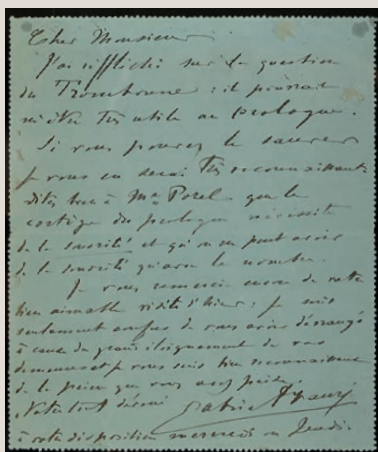 Cher Monsieur
J'ai réfléchi sur la question
du Trombone : il pourrait
m'être très utile au prologue.
Si vous pouvez le sauver
je vous en serai très reconnaissant.
dites bien à Mr Porel que le
cortège du prologue nécessite
de la sonorité et qu'on ne peut avoir
de la sonorité qu'avec le nombre.
Je vous remercie encore de votre
bien aimable visite d'hier : je suis
seulement confus de vous avoir dérangé
à cause du grand éloignement de vos
demeures et je vous suis bien reconnaissant
de la peine que vous avez prise.
Votre tout dévoué
Gabriel Fauré
à votre disposition mercredi ou Jeudi.